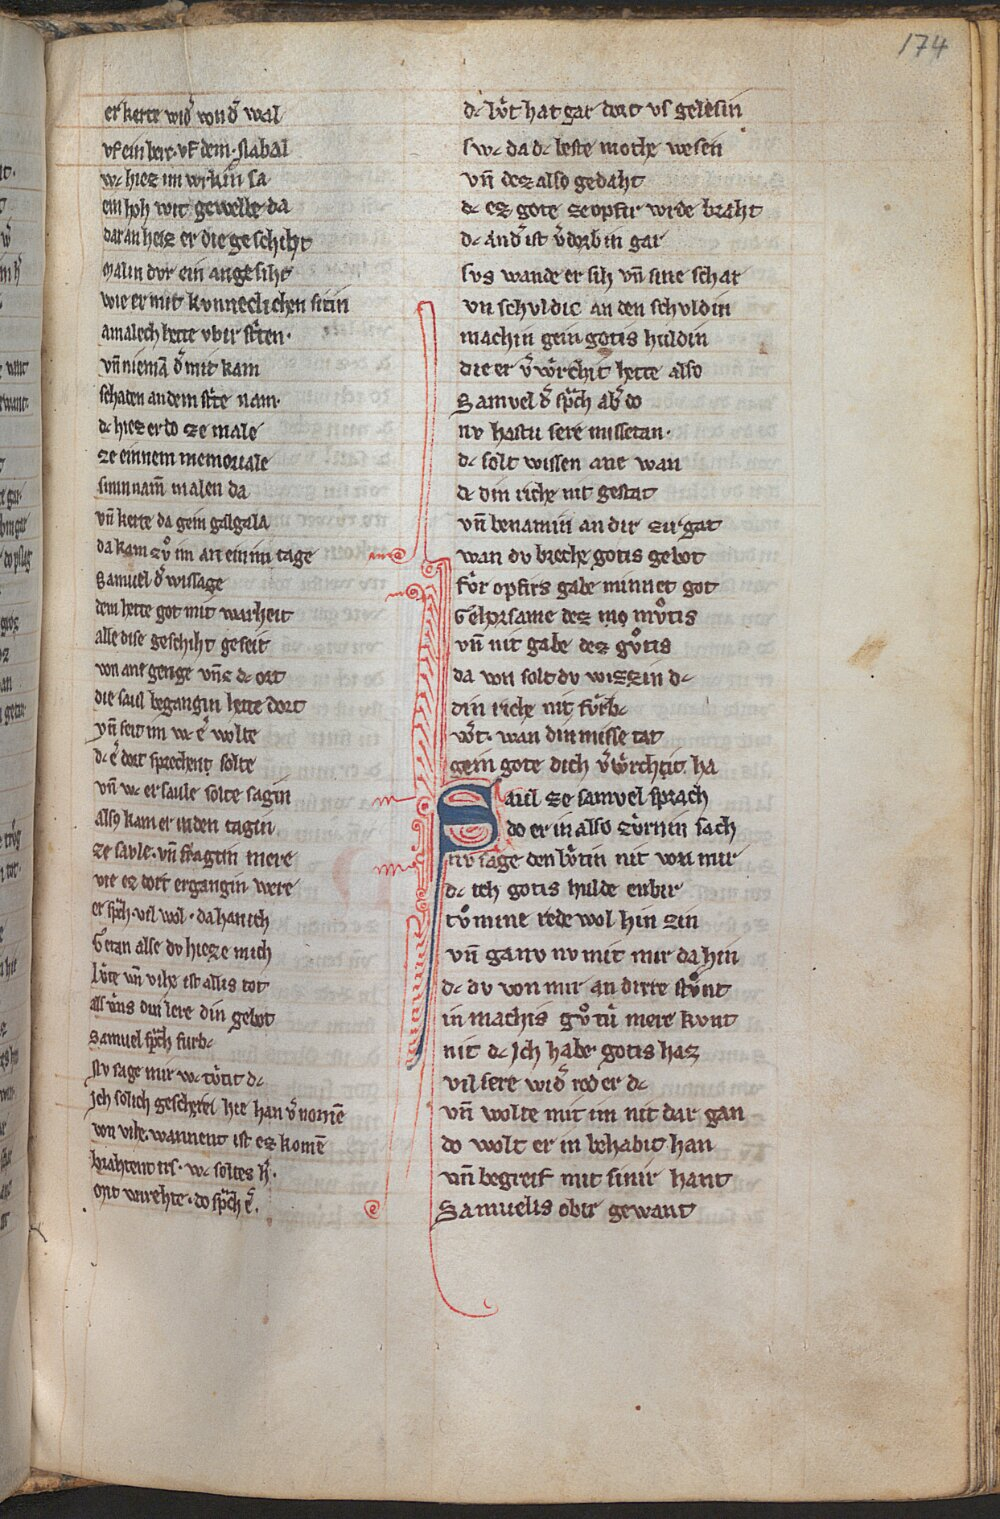 174
er kerte wid᷑ von d᷑ wal
vf ein berc vf dem stabal
w᷒ hiez im wrkin sa
ein hoh wit gewelbe da
dar an heiz er die geschiht
malin dvr ein angesiht
wie er mit kvnneclichen sitin
amalech hette vbir strten·
vn̄ niemā d᷑ mit kam
schaden an dem strte nam·
d᷒ hiez er do ze male
ze einnem memoriale
sinin nam̄ malen da
vn̄ kerte da gein galgala
da kam zvͦ im an einim tage
Samuel d᷑ wissage
dem hette got mit warheit
alle dise geschiht geseit
von ane genge vn̄c d᷒ ort
die saul begangin hette dort
vn̄ seit im w᷒ e᷑ wolte
d᷒ e᷑ dort sprechent solte
vn̄ w᷒ er saule solte sagin
also kam er in den tagin
ze savle· vn̄ fragtin mere
wie ez dort ergangin were
er sp̄ch· vil wol· da han ich
Getan alse dv hieze mich
lv́te vn̄ vihe ist allis tot
als v́ns din lere din gebot
Samuel sp̄ch furb᷒
Nv sage mir w᷒ tv́tit d᷒
ich sölich geschrei hie han v᷑nomē
von vihe· wannent ist ez komē
brahtent irs· w᷒ soltes h᷑·
ont virehte· do sp̄ch e᷑.
d᷒ lv́t hat gar dort vs gelesin
sw᷒ da d᷒ beste mohte wesen
vn̄ dez also gedaht
d᷒ ez gote ze opfir wrde braht
d᷒ and᷑ ist v᷑dorbin gar
svs wande er sih vn̄ sine schar
vn schvldic an den schvldin
machin gein gotis huldin
die er v᷑wv́rchit hette also
Samvel d᷑ sp̄ch ab᷑ do
nv hastu sere missetan·
d᷒ solt wissen ane wan
d᷒ din riche nit gestat
vn̄ benamin an dir zu gat
wan dv breche gotis gebot
fv́r opfirs gabe minnet got
Gehorsame dez mo mvͦtis
vn̄ nit gabe dez gvͦtis
da von solt dv wizzin d᷒
din riche nit fv́rb᷒
wv́t· wan din misse tat
gein gote dich v᷑wv́rchtit ha
Saul ze samvel sprach
do er in also zv́rnin sach
nv sage den lv́tin nit von mir
d᷒ ich gotis hulde enbir
tvͦ mine rede wol hin zin
vn̄ gang nv mit mir da hin
d᷒ dv von mir an dirre stvͦnt
in machis gvͦtú mere kvnt
nit d᷒ ich habe gotis haz
vil sere wid᷑ rod er d᷒
vn̄ wolte mit im nit dar gan
do wolt er in behabit han
vn̄ begreif mit sinir hant
Samuelis obir gewant